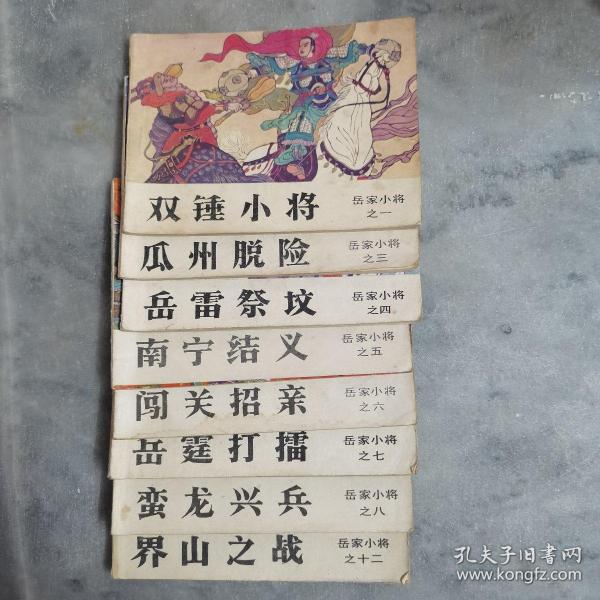 双锤小将
岳家小将
之一
瓜州脱险
岳家小将
之三
岳雷祭坟
岳家小将
之四
南宁结义
岳家小将
之五
闯关招亲
岳家小将
之六
岳霆打擂
岳家小将
之七
蛮龙兴兵
岳家小将
之八
界山之战
岳家小将
之十二
孔夫子旧书网
www.kongfz.com